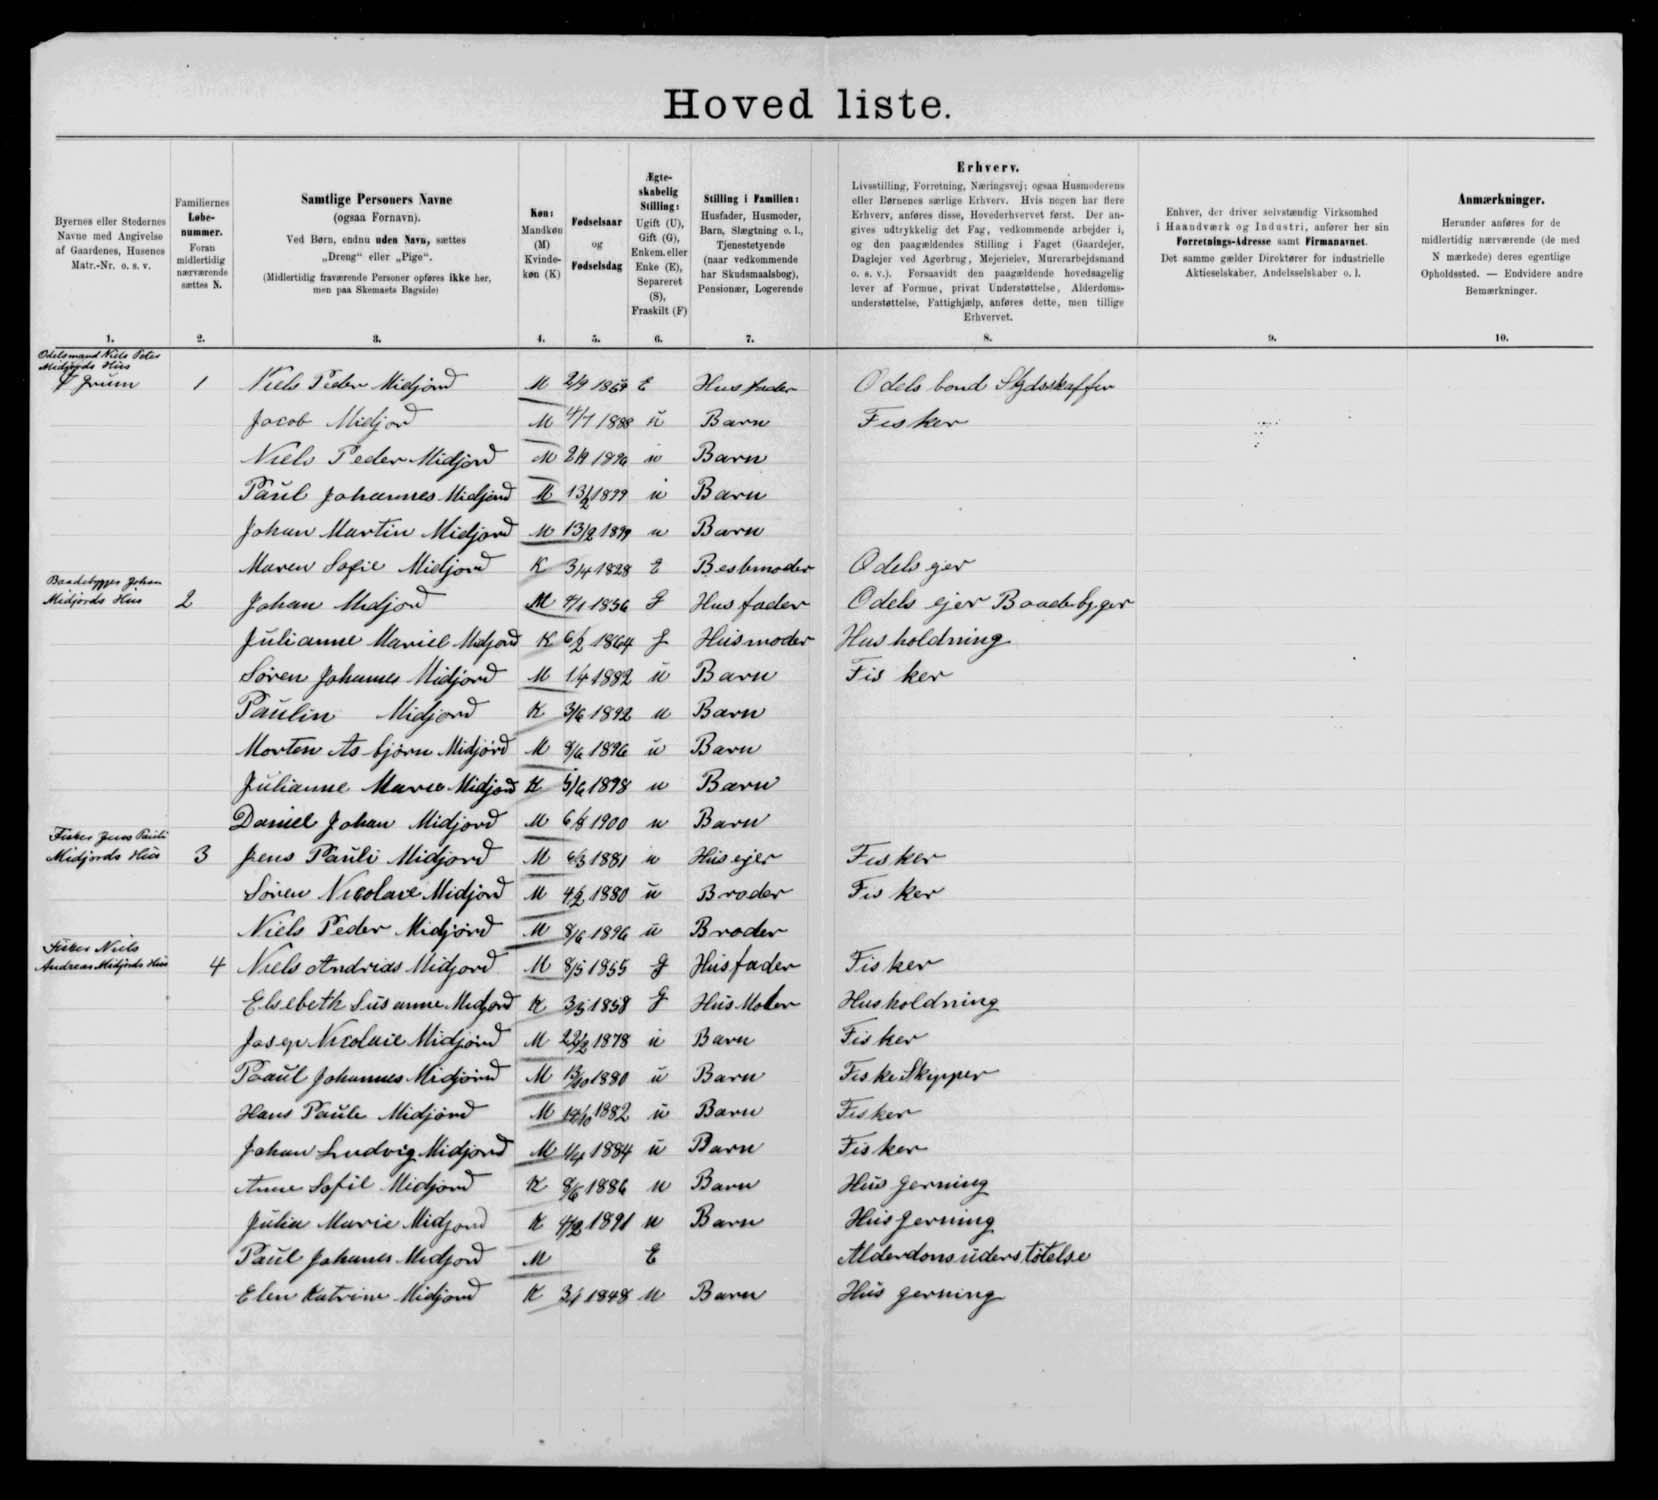 Hoved liste.
Byernes eller Stedernes
Navne med Angivelse
af Gaardenes, Husenes
Matr.-Nr. o. s. v.
1.
Familiernes
Løbe-
nummer.
Foran
midlertidig
nærværende
sættes N.
2.
Samtlige Personers Navne
(ogsaa Fornavn).
Ved Børn, endnu uden Navn, sættes
„Dreng“ eller „Pige“.
(Midlertidig fraværende Personer opføres ikke her,
men paa Skemaets Bagside)
3.
Køn:
Mandkøn
(M)
Kvinde-
køn (K)
4.
Fødselsaar
og
Fødselsdag
5.
Ægte-
skabelig
Stilling:
Ugift (U),
Gift (G),
Enkem. eller
Enke (E),
Separeret
(S),
Fraskilt (F)
6.
Stilling i Familien:
Husfader, Husmoder,
Barn, Slægtning o. l.,
Tjenestetyende
(naar vedkommende
har Skudsmaalsbog),
Pensionær, Logerende
7.
Erhverv.
Livsstilling, Forretning, Næringsvej; ogsaa Husmoderens
eller Børnenes særlige Erhverv. Hvis nogen har flere
Erhverv, anføres disse, Hovederhvervet først. Der an-
gives udtrykkelig det Fag, vedkommende arbejder i,
og den paagældendes Stilling i Faget (Gaardejer,
Daglejer ved Agerbrug, Mejerielev, Murerarbejdsmand
o. s. v.). Forsaavidt den paagældende hovedsagelig
lever af Formue, privat Understøttelse, Alderdoms-
understøttelse, Fattighjælp, anføres dette, men tillige
Erhvervet.
8.
Enhver, der driver selvstændig Virksomhed
i Haandværk og Industri, anfører her sin
Forretnings-Adresse samt Firmanavnet.
Det samme gælder Direktører for industrielle
Aktieselskaber, Andelsselskaber o. l.
9.
Anmærkninger.
Herunder anføres for de
midlertidig nærværende (de med
N mærkede) deres egentlige
Opholdssted. — Endvidere andre
Bemærkninger.
10.
Odelsmand Niels Peter
Midjords Hus
1 Niels Peder Midjord M 2/9 1859 E Husfader Odels bond Skydsskaffer
Jacob Midjord M 4/7 1888 u Barn Fisker
Niels Peder Midjord M 2/9 1896 u Barn
Paul Johannes Midjord M 13/2 1899 u Barn
Johan Martin Midjord M 13/2 1899 u Barn
Maren Sofie Midjord K 3/4 1828 E Bestmoder Odels ejer
Baadebygger Johan
Midjords Hus 2 Johan Midjord M 4/1 1856 G Husfader Odels ejer Baadebyger
Julianne Mariel Midjord K 6/2 1864 G Husmoder Husholdning
Søren Johannes Midjord M 1/4 1882 u Barn Fisker
Paulin Midjord K 3/6 1892 u Barn
Morten Asbjørn Midjord M 8/6 1896 u Barn
Julianne Marie Midjord K 5/6 1898 u Barn
Daniel Johan Midjord M 6/8 1900 u Barn
Fisker Jens Pauli
Midjords Hus 3 Jens Pauli Midjord M 6/3 1881 u Husejer Fisker
Søren Nicolaie Midjord M 4/2 1880 u Broder Fisker
Niels Peder Midjord M 8/6 1896 u Broder
Fisker Niels
Andreas Midjords Hus 4 Niels Andrias Midjord M 8/5 1855 G Husfader Fisker
Elsebeth Susanne Midjord K 3/5 1858 G HusModer Husholdning
Josep Nicolaie Midjord M 22/2 1878 u Barn Fisker
Paaul Johannes Midjord M 13/10 1880 u Barn FiskeSkipper
Hans Paule Midjord M 14/10 1882 u Barn Fisker
Johan Ludvig Midjord M 1/4 1884 u Barn Fisker
Anne Sofie Midjord K 8/6 1886 u Barn Hus gerning
Julia Marie Midjord K 4/12 1891 u Barn Husgerning
Paul Johanes Midjord M E Alderdoms uderstøtelse
Elen Katrine Midjord K 3/1 1848 u Barn Hus gerning